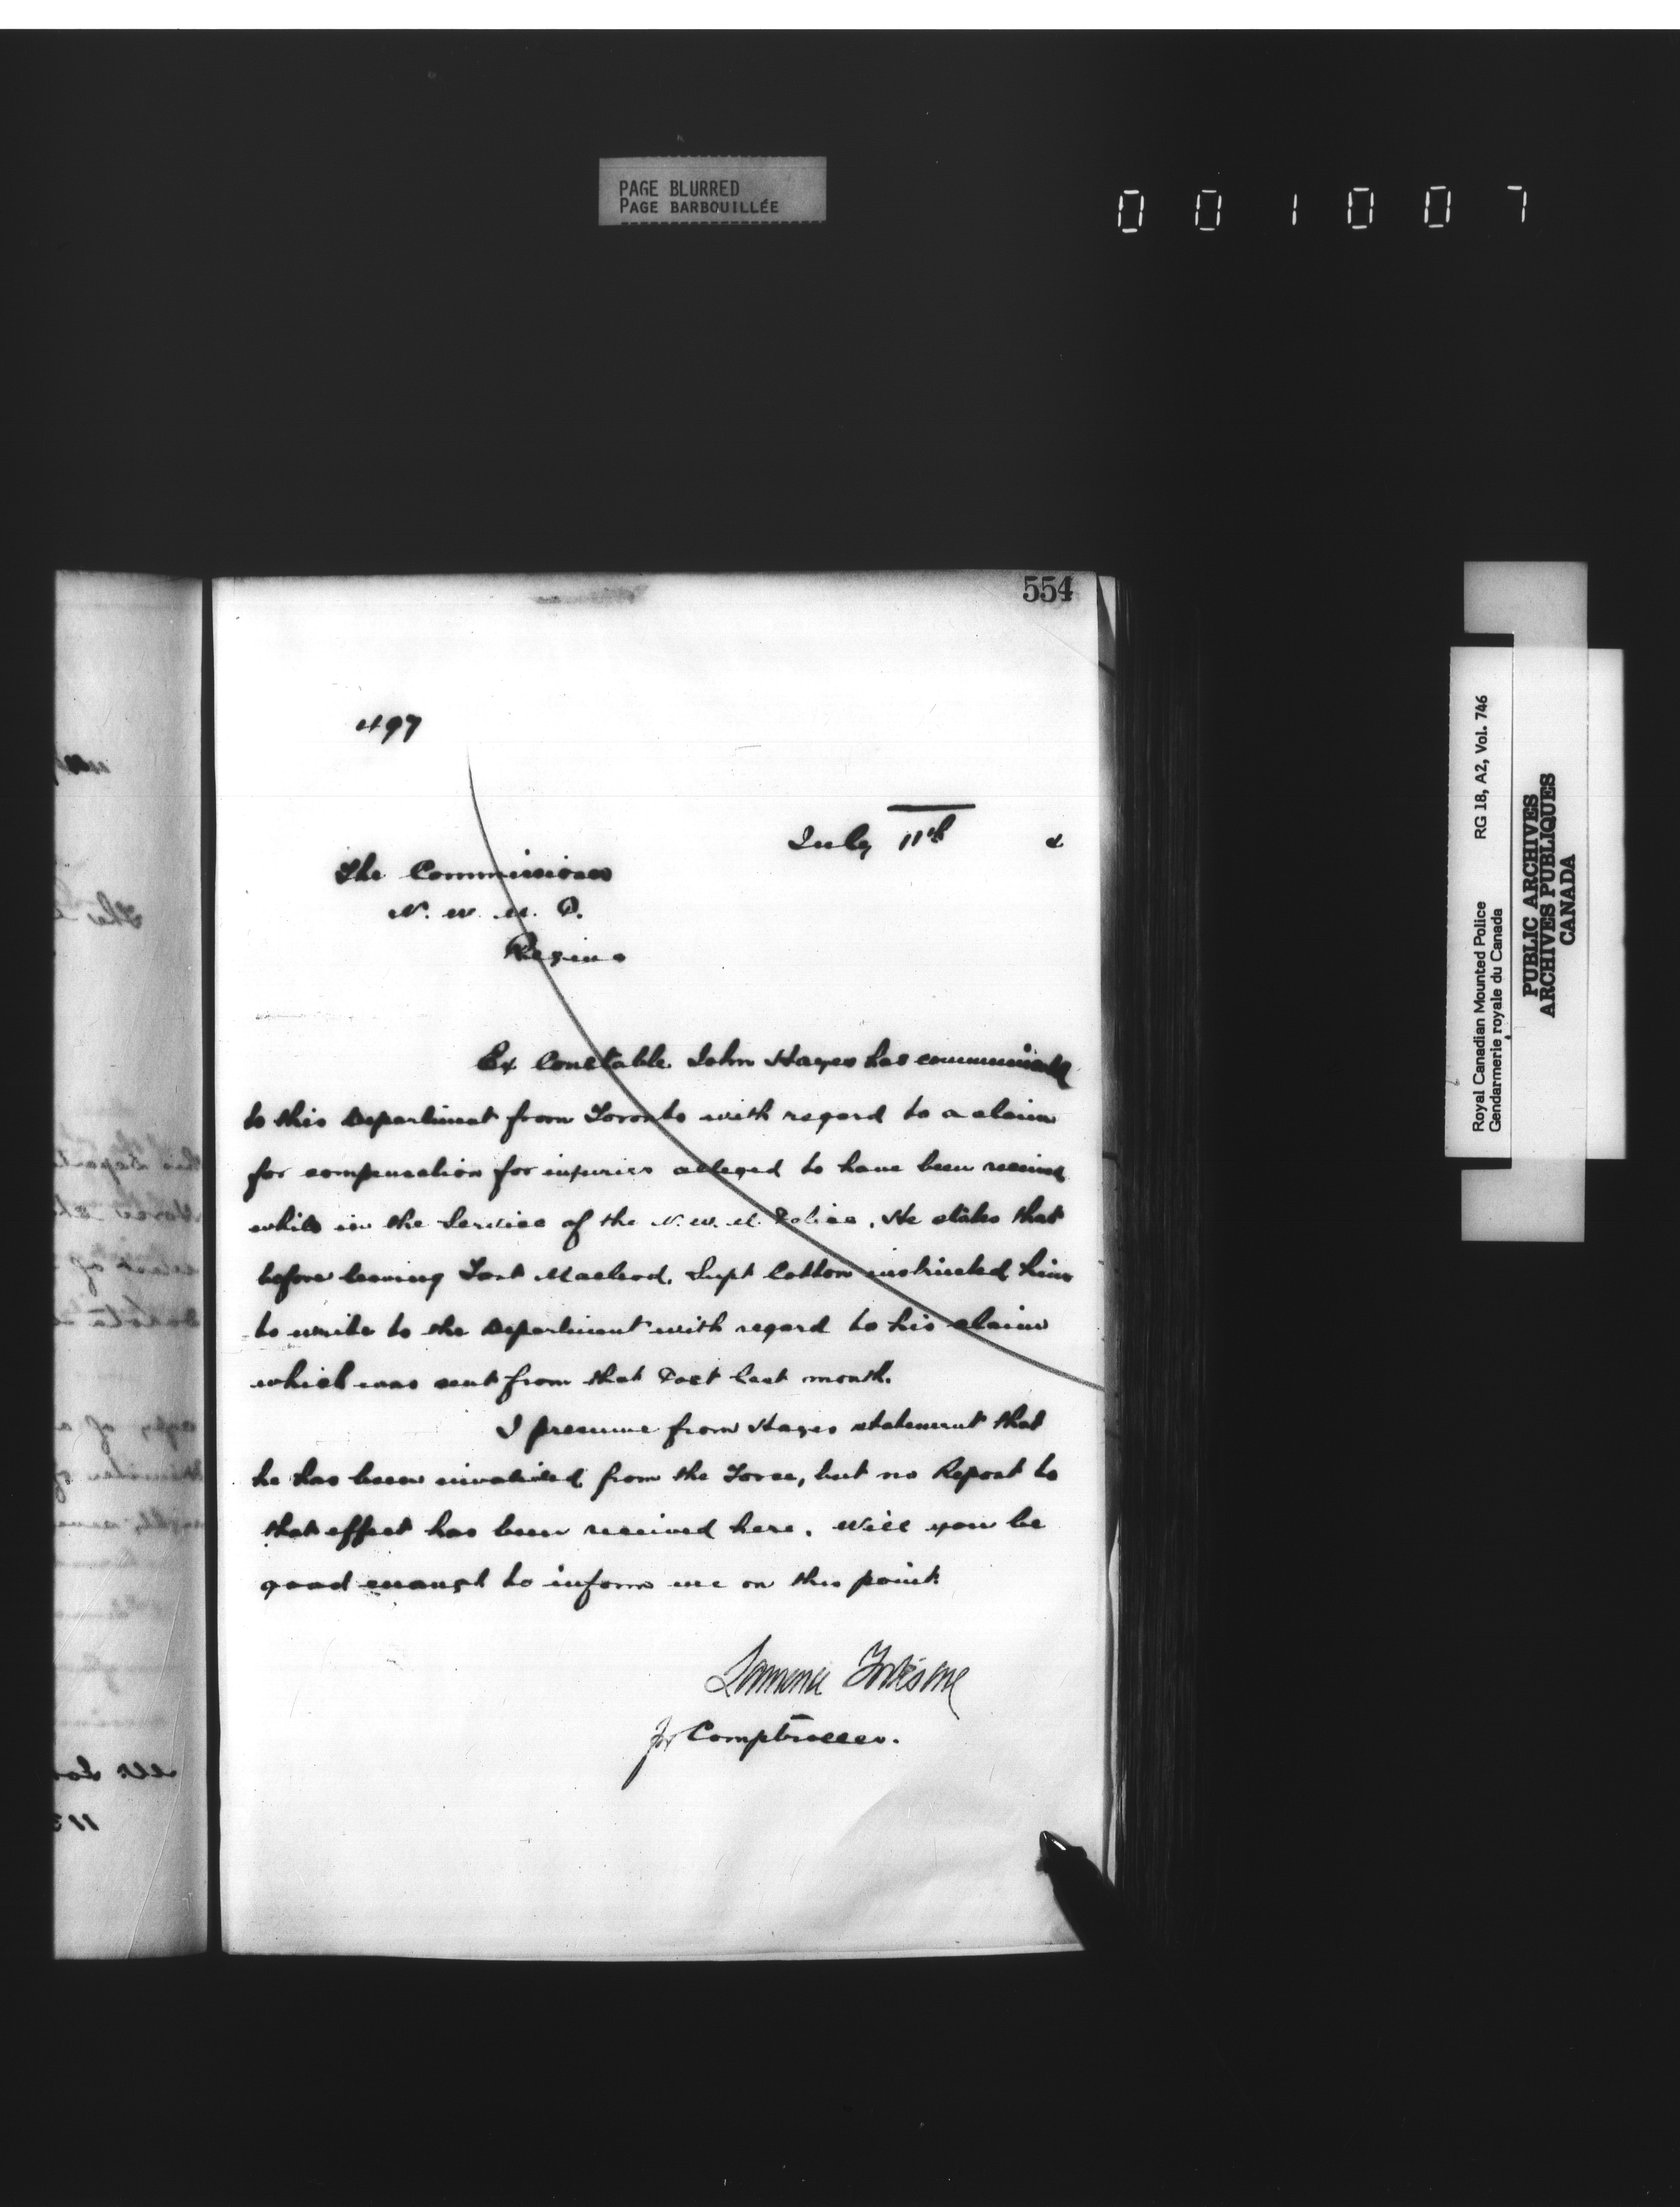 PAGE BLURRED
PAGE BARBOUILLÉE
001007
554
497
July 11th
The Commissioner
N. W. M. P.
Regina
Ex Constable John Hayes has communicated
to this Department from Toronto with regard to a claim
for compensation for injuries alleged to have been received
while in the Service of the N. W. M. Police. He states that
before leaving Fort Macleod, Supt Cotton instructed him
to write to the Department with regard to his claim
which was sent from that Post last month.
I presume from Hayes statement that
he has been invalided from the Force, but no Report to
that effect has been received here. Will you be
good enough to inform me on this point.
for Comptroller.
Royal Canadian Mounted Police RG 18, A2, Vol. 746
Gendarmerie royale du Canada
PUBLIC ARCHIVES
ARCHIVES PUBLIQUES
CANADA